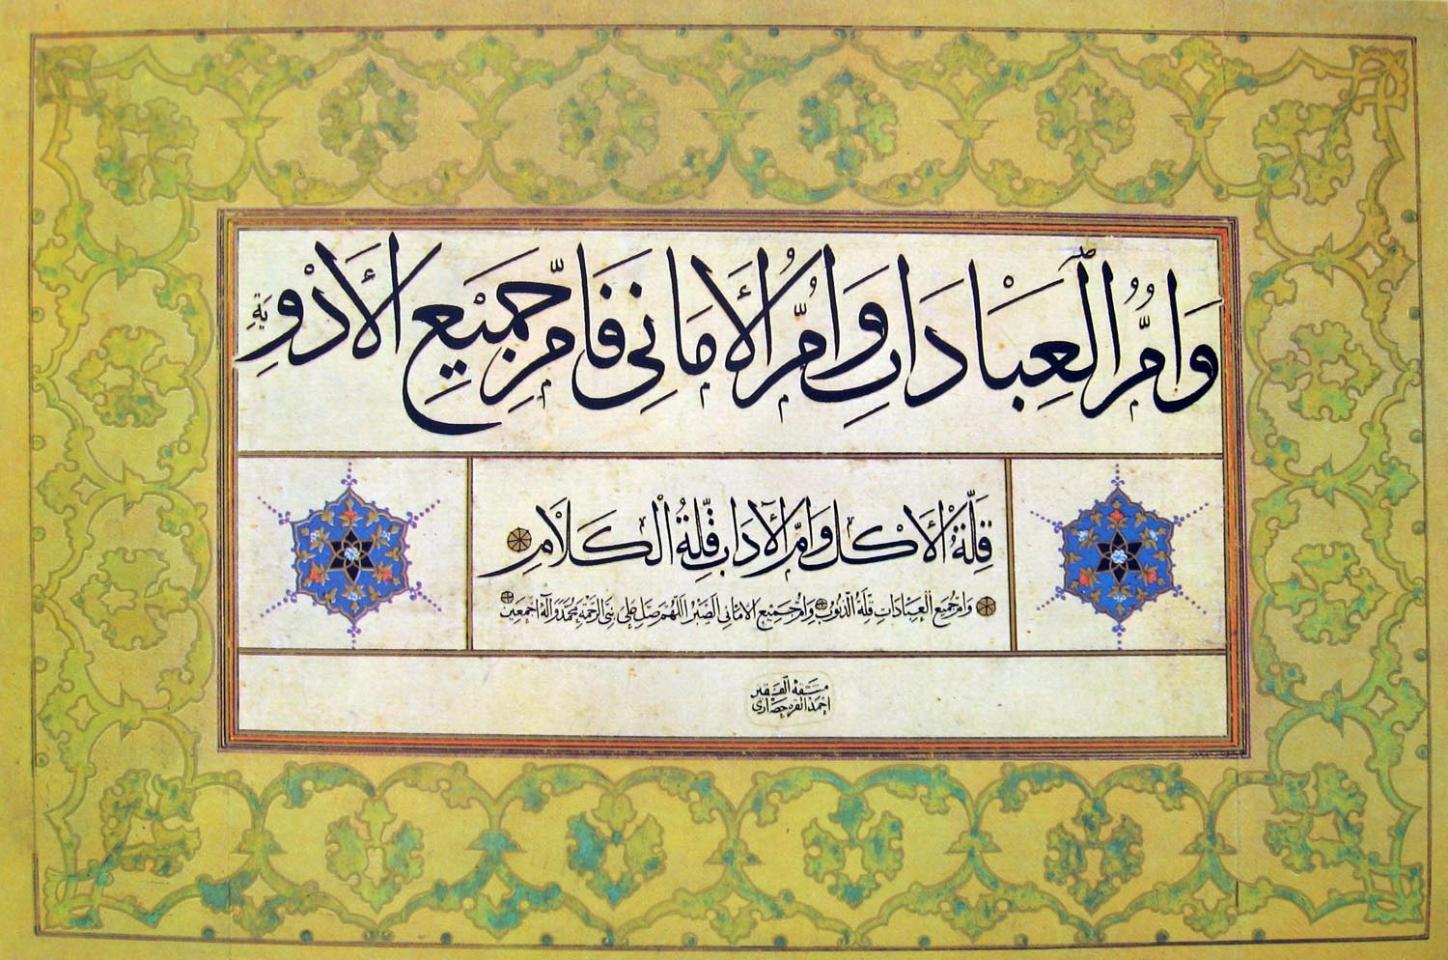 وَامُّ الْعِبَادَاتِ وَامُّ الْأَمَانِي فَامُّ جَمِيْعِ الْأَدْوِيَةِ
قِلَّةُ الْأَكْلِ وَامُّ الْآدَابِ قِلَّةُ الْكَلَامِ
وَامُّ جَمِيعِ الْعِبَادَاتِ قِلَّةُ الذُّنُوبِ وَامُّ جَمِيعِ الْأَمَانِي الصَّبْرُ اللَّهُمَّ صَلِّ عَلَى نَبِيِّ الرَّحْمَةِ مُحَمَّدٍ وَآلِهِ أَجْمَعِينَ
مشقه الفقير
احمد القره حصاري